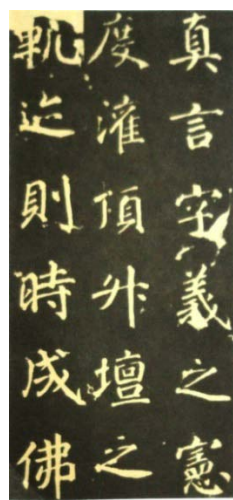 真言字義之憲
度灌頂升壇之
軌迹則時成佛